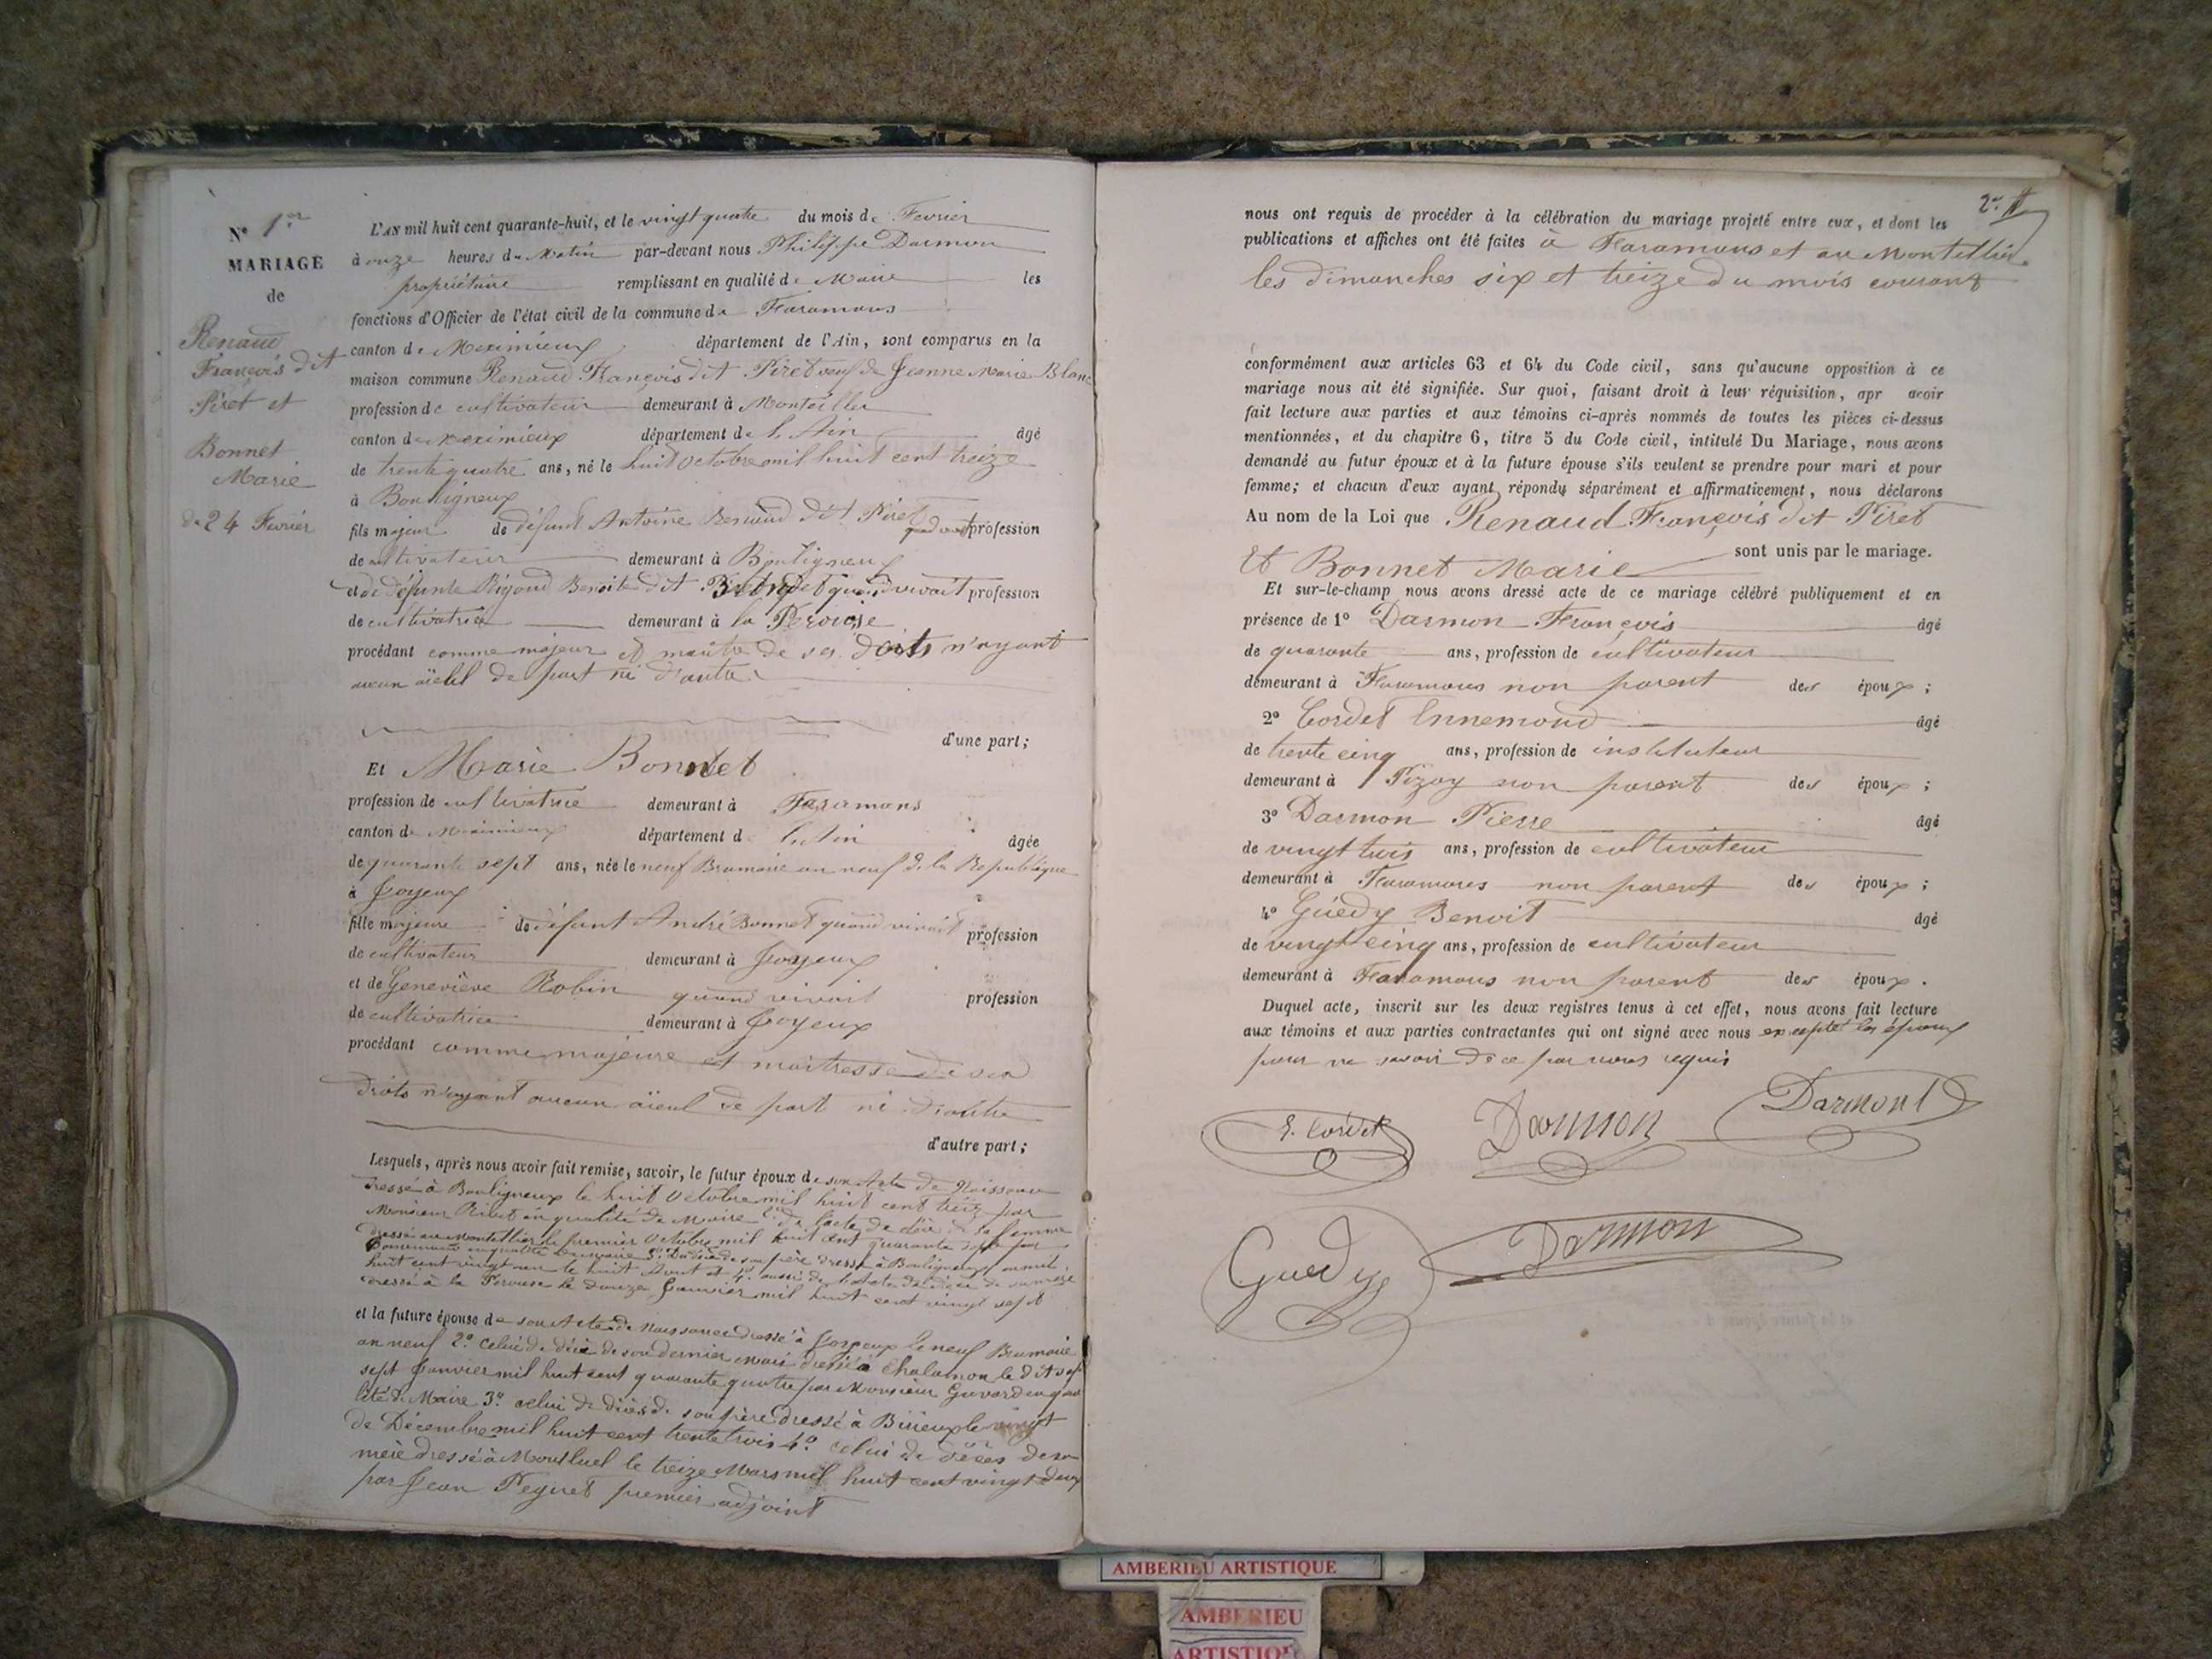 N° 1er
MARIAGE
de
Renaud
François dit
Piret et
Bonnet
Marie
du 24 Fevrier
L'AN mil huit cent quarante-huit, et le vingt quatre du mois de Fevrier
à onze heures du Matin par-devant nous Philippe Darmon
propriétaire remplissant en qualité de Maire les
fonctions d'Officier de l'état civil de la commune de Faramans
canton de Meximieux département de l'Ain, sont comparus en la
maison commune Renaud François dit Piret veuf de Jeanne Marie Blanc
profession de cultivateur demeurant à Montellier
canton de Meximieux département de l'Ain âgé
de trente quatre ans, né le huit Octobre mil huit cent treize
à Bouligneux
fils majeur de défunt Antoine Renaud dit Piret quand vivait profession
de cultivateur demeurant à Bouligneux
et de défunte Rigoud Benoite dit quand vivait profession
de cultivatrice demeurant à la Perouse
procédant comme majeur et maître de ses droits n'ayant
aucun aïeul de part ni d'autre
d'une part;
Et Marie Bonnet
profession de cultivatrice demeurant à Faramans
canton de Meximieux département de l'Ain âgée
de quarante sept ans, née le neuf Brumaire an neuf de la Republique
à Joyeux
fille majeure de défunt André Bonnet quand vivait profession
de cultivateur demeurant à Joyeux
et de Geneviève Robin quand vivait profession
de cultivatrice demeurant à Joyeux
procédant comme majeure et maitresse de ses
droits n'ayant aucun aïeul de part ni d'autre
d'autre part;
Lesquels, après nous avoir fait remise, savoir, le futur époux de son Acte de Naissance
dressé à Bouligneux le huit Octobre mil huit cent treize par
Monsieur Ribet en qualité de Maire 2° de l'acte de décès de sa femme
dressé au Montellier le premier Octobre mil huit cent quarante sept par
en qualité de maire 3° Du décès de son père dressé à Bouligneux an mil
huit cent vingt un le huit Aout et 4° aussi de l'acte de décès de sa mère
dressé à la Perouse le douze Janvier mil huit cent vingt sept
et la future épouse de son Acte de Naissance dressé à Joyeux le neuf Brumaire
an neuf 2° celui de décès de son dernier mari dressé à Chalamon le dit
sept Janvier mil huit cent quarante quatre par Monsieur Guvard en qua
lité de Maire 3° celui de décès de son père dressé à Birieux le vingt
de Décembre mil huit cent trente trois 4° celui de décès de sa
mère dressé à Montluel le treize Mars mil huit cent vingt deux
par Jean Peyret premier adjoint
2e
nous ont requis de procéder à la célébration du mariage projeté entre eux, et dont les
publications et affiches ont été faites à Faramans et au Montellier
les dimanches six et treize du mois courant
conformément aux articles 63 et 64 du Code civil, sans qu'aucune opposition à ce
mariage nous ait été signifiée. Sur quoi, faisant droit à leur réquisition, apr avoir
fait lecture aux parties et aux témoins ci-après nommés de toutes les pièces ci-dessus
mentionnées, et du chapitre 6, titre 5 du Code civil, intitulé Du Mariage, nous avons
demandé au futur époux et à la future épouse s'ils veulent se prendre pour mari et pour
femme; et chacun d'eux ayant répondu séparément et affirmativement, nous déclarons
Au nom de la Loi que Renaud François dit Piret
et Bonnet Marie sont unis par le mariage.
Et sur-le-champ nous avons dressé acte de ce mariage célébré publiquement et en
présence de 1° Darmon François âgé
de quarante ans, profession de cultivateur
demeurant à Faramans non parent des époux;
2° Cordet Ennemond âgé
de trente cinq ans, profession de instituteur
demeurant à Pizay non parent des époux;
3° Darmon Pierre âgé
de vingt trois ans, profession de cultivateur
demeurant à Faramans non parent des époux;
4° Guédy Benoit âgé
de vingt cinq ans, profession de cultivateur
demeurant à Faramans non parent des époux.
Duquel acte, inscrit sur les deux registres tenus à cet effet, nous avons fait lecture
aux témoins et aux parties contractantes qui ont signé avec nous excepté les époux
pour ne savoir de ce par nous requis
E. Cordet Darmon Darmont
Guedy Darmon
AMBERIEU ARTISTIQUE
AMBERIEU
ARTISTIQUE